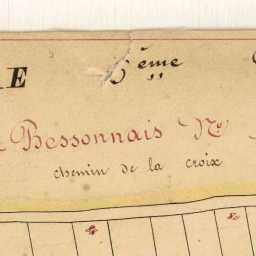 ème
Bessonnais No
chemin de la croix